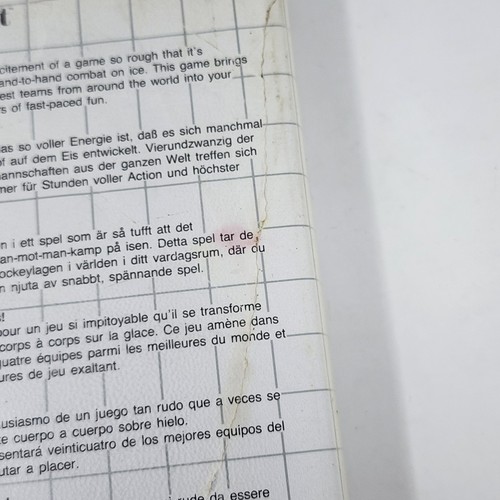 t
citement of a game so rough that it's
and-to-hand combat on ice. This game brings
est teams from around the world into your
s of fast-paced fun.
as so voller Energie ist, daß es sich manchmal
f auf dem Eis entwickelt. Vierundzwanzig der
annschaften aus der ganzen Welt treffen sich
mer für Stunden voller Action und höchster
n i ett spel som är så tufft att det
an-mot-man-kamp på isen. Detta spel tar de
ockeylagen i världen i ditt vardagsrum, där du
n njuta av snabbt, spännande spel.
s!
pour un jeu si impitoyable qu'il se transforme
corps à corps sur la glace. Ce jeu amène dans
quatre équipes parmi les meilleures du monde et
ures de jeu exaltant.
usiasmo de un juego tan rudo que a veces se
e cuerpo a cuerpo sobre hielo.
sentará veinticuatro de los mejores equipos del
utar a placer.
rude da essere